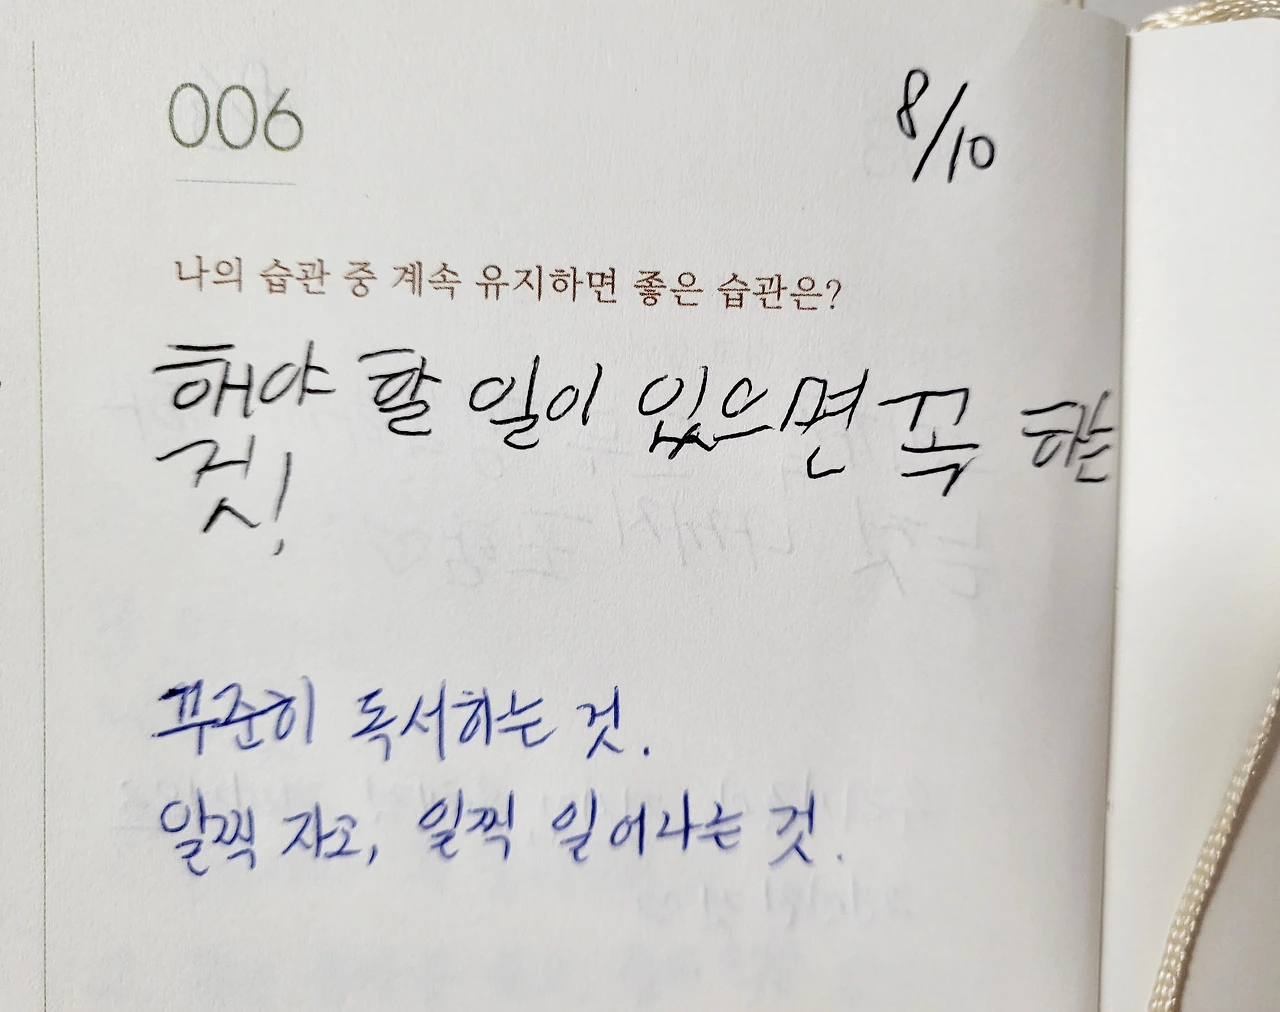 006
8/10
나의 습관 중 계속 유지하면 좋은 습관은?
해야 할 일이 있으면 꼭 하는
것!
꾸준히 독서하는 것.
일찍 자고, 일찍 일어나는 것.